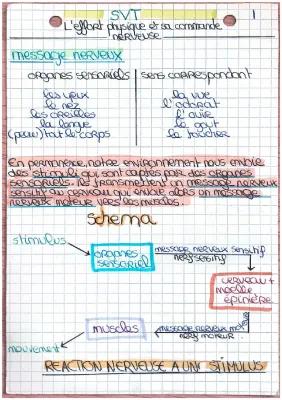 SVT
1
L'effort physique et sa commande
nerveuse
message nerveux
organes sensoriels
sens correspondant
les yeux
la vue
le nez
l'odorat
les oreilles
l'ouïe
la langue
le goût
(peau) tout le corps
le toucher
En permanence, notre environnement nous envoie
des stimuli qui sont captés par des organes
sensoriels. Ils transmettent un message nerveux
sensitif au cerveau qui envoie alors un message
nerveux moteur vers les muscles.
Schema
stimulus
organes
sensoriel
message nerveux sensitif
nerf sensitif
cerveau +
moelle
épinière
muscles
message nerveux moteur
nerf moteur
mouvement
REACTION NERVEUSE A UN STIMULUS